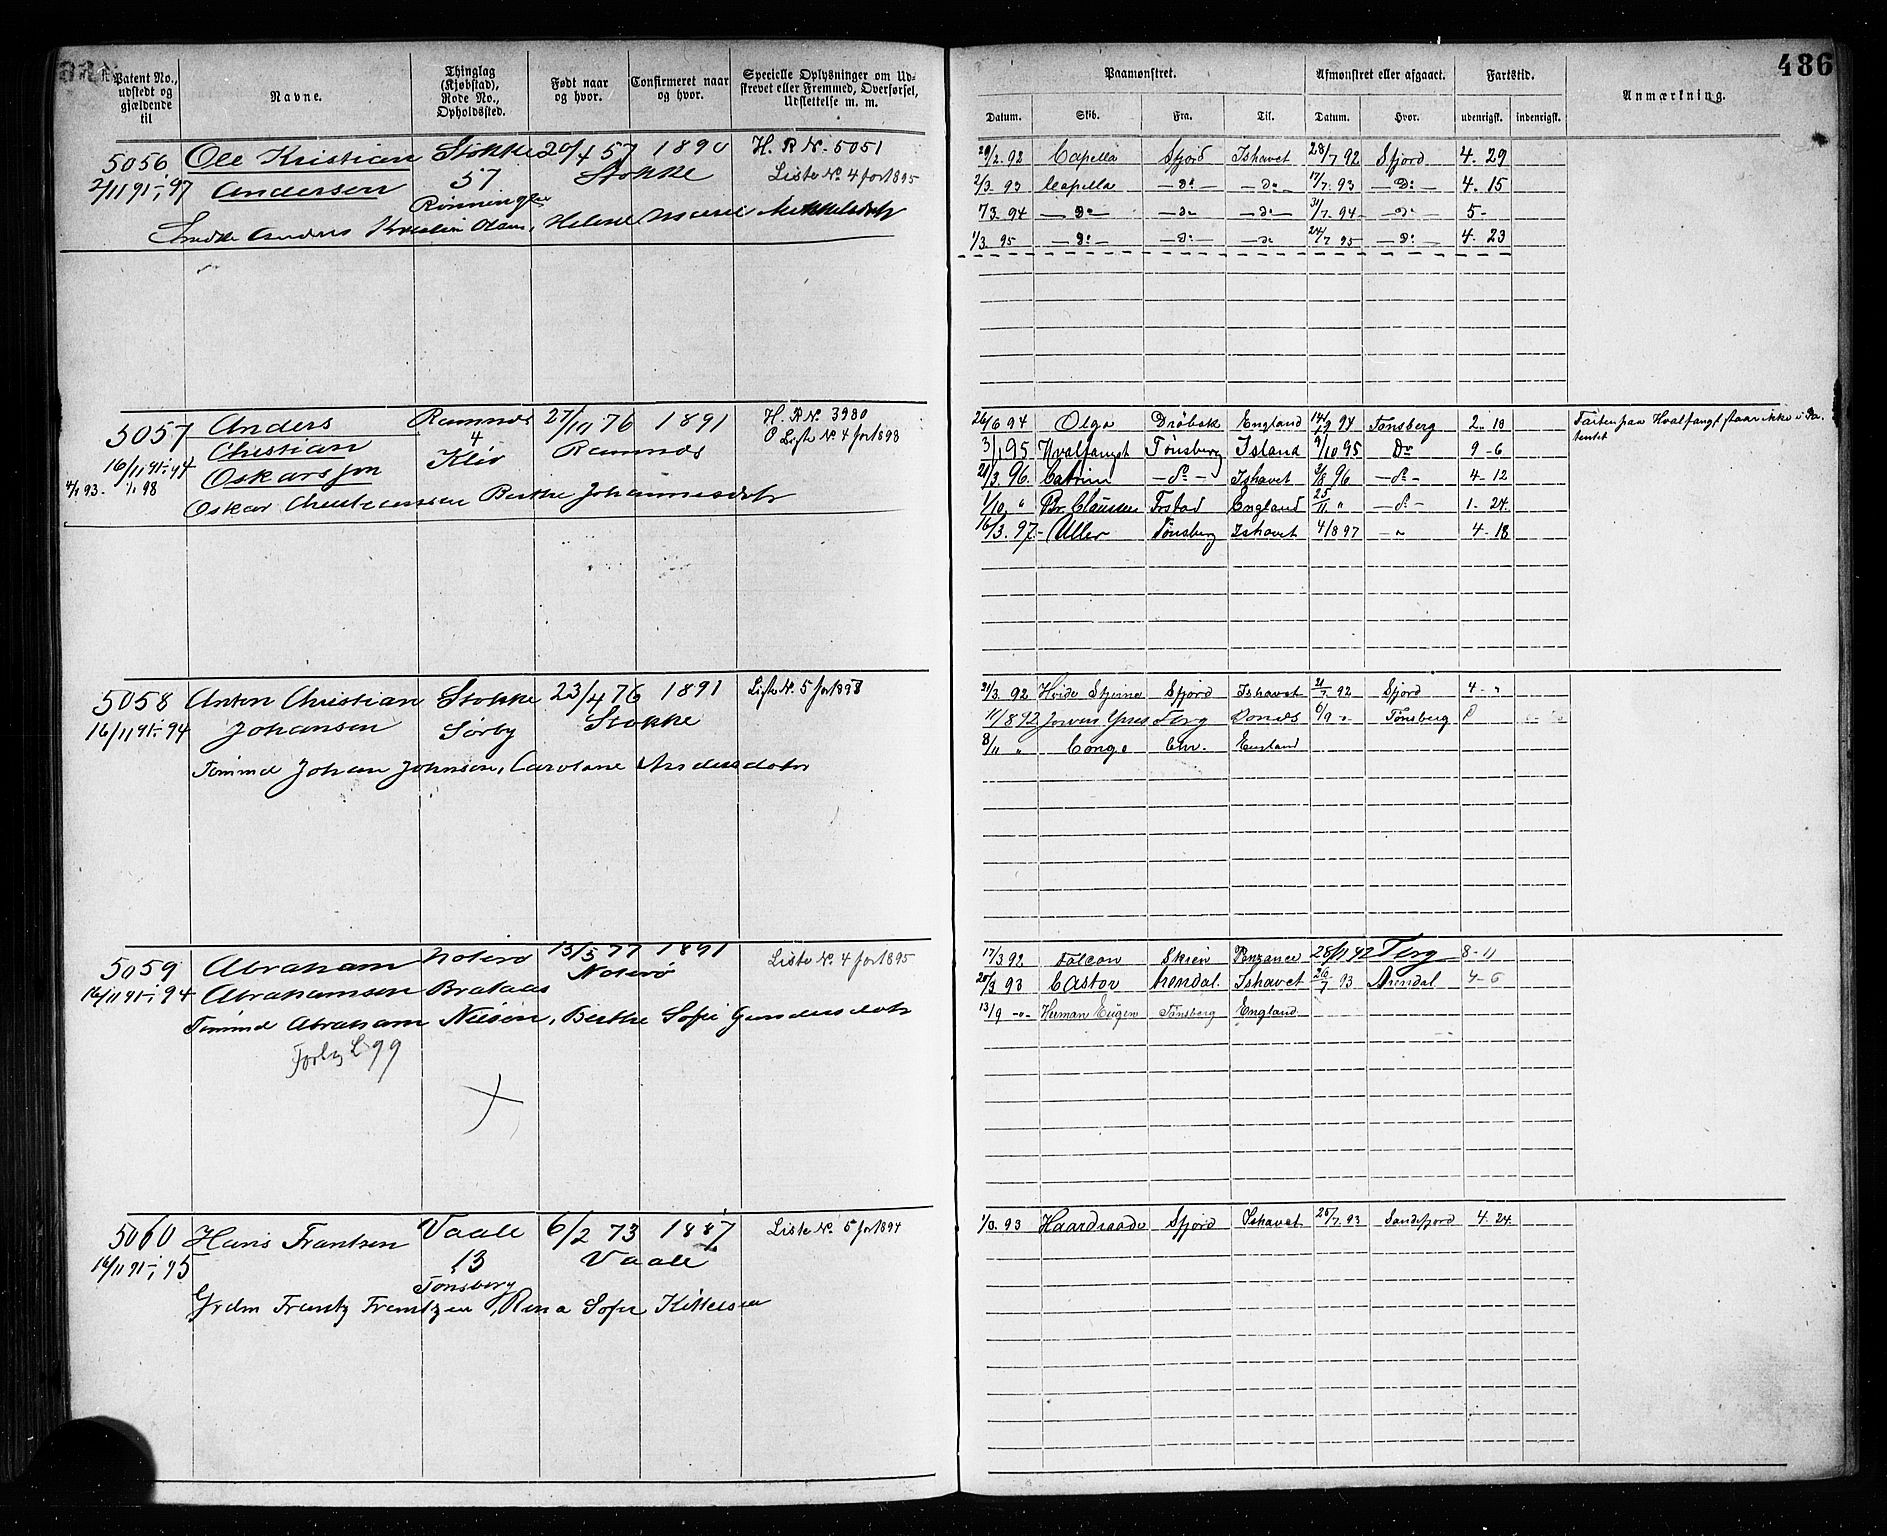 486
Patent No., udstedt og gjældende til
Navne.
Thinglag (Kjøbstad), Rode No., Opholdssted.
Født naar og hvor.
Confirmeret naar og hvor.
Specielle Oplysninger om Udskrevet eller Fremmed, Overførsel, Udslettelse m. m.
Paamønstret.
Afmønstret eller afgaaet.
Fartstid.
Anmærkning.
Datum. Skib. Fra. Til. Datum. Hvor. udenrigsk. indenrigsk.
5056 Ole Kristian Stokke 20/4 57 1890 H. R No. 5051
2/11 91 - 97 Andersen 57 Stokke Liste No. 4 for 1895
Anders Kristian Olsen, Helene Marie Mikkelsdatr
29/2. 92 Capella Sfjord Ishavet 28/7 92 Sfjord 4. 29
2/3. 93 Capella - Do - - Do - 17/7. 93 - Do - 4. 15
7 3. 94 - Do - - Do - - Do - 31/7. 94 - Do - 5 -
1/3. 95 - Do - - Do - - Do 24/7 95 - Do - 4. 23
5057 Anders Ramnæs 27/11 76 1891 H. R No. 3980
Christian 4 Ramnæs O Liste No. 4 for 1898
16/11 91 - 94 Oskarssen Klev
4/1 93 - 1/1 98
Oskar Christiansen Berthe Johannesdatr
26/6 94 Olga Drøbak England 14/9 94 Tønsberg 2. 18 Farten paa Hvalfangst staar ikke i Patentet
3/1 95 Hvalfangst Tønsberg Island 9/10 95 Do 9 - 6
21/3. 96. Catrine - do - Ishavet 3/8 96 - do - 4 - 12
1/10 " Br. Clausen Frstad England 25/11 " - do - 1. 24
16/3. 97 - Uller Tønsberg Ishavet 4/8 97 - " 4 - 18
5058 Anton Christian Stokke 23/4 76 1891 Liste No. 5 for 1898
16/11 91 - 94 Johansen Sørby Stokke
Tømmd Johan Johnsen, Caroline Andersdatr
21/3. 92 Hvide Stjerne Sfjord Ishavet 21/7 92 Sfjord 4 - "
11/8 92 Tbrg 6/9 - " - Tønsberg
8/11 " Congo Chr. England
5059 Abraham Noterø 13/5 77 1891 Liste No. 4 for 1895
16/11 91 - 94 Abrahamsen Brataas Noterø
Tømmd Abraham Nilsen, Berthe Sofie Gundersdatr
L 99
17/3 92 Falcon Skien Penzance 28/11 92 Tbrg 8 - 11
20/3 93 Castor Arendal. Ishavet 26/7 93 Arendal 4 - 6
13/9 - " - Herman Eugen Tønsberg England
5060 Hans Frantzen Vaale 6/2 73 1887 Liste No. 5 for 1894
16/11 91 - 95 13 Vaale
Tønsberg
Grdm Frantz Frantzen, Rina Sofie Kittelsen
1/3. 93 Haardraade Sfjord Ishavet 25/7. 93 Sandefjord 4. 24.